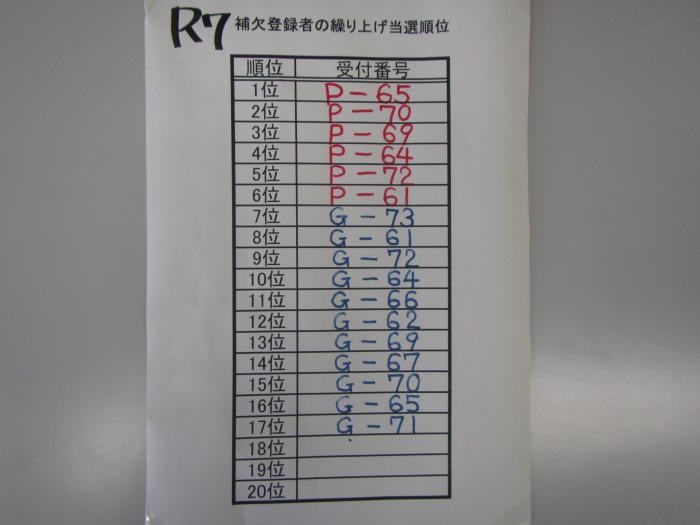 R7 補欠登録者の繰り上げ当選順位
順位 受付番号
1位 P-65
2位 P-70
3位 P-69
4位 P-64
5位 P-72
6位 P-61
7位 G-73
8位 G-61
9位 G-72
10位 G-64
11位 G-66
12位 G-62
13位 G-69
14位 G-67
15位 G-70
16位 G-65
17位 G-71
18位
19位
20位